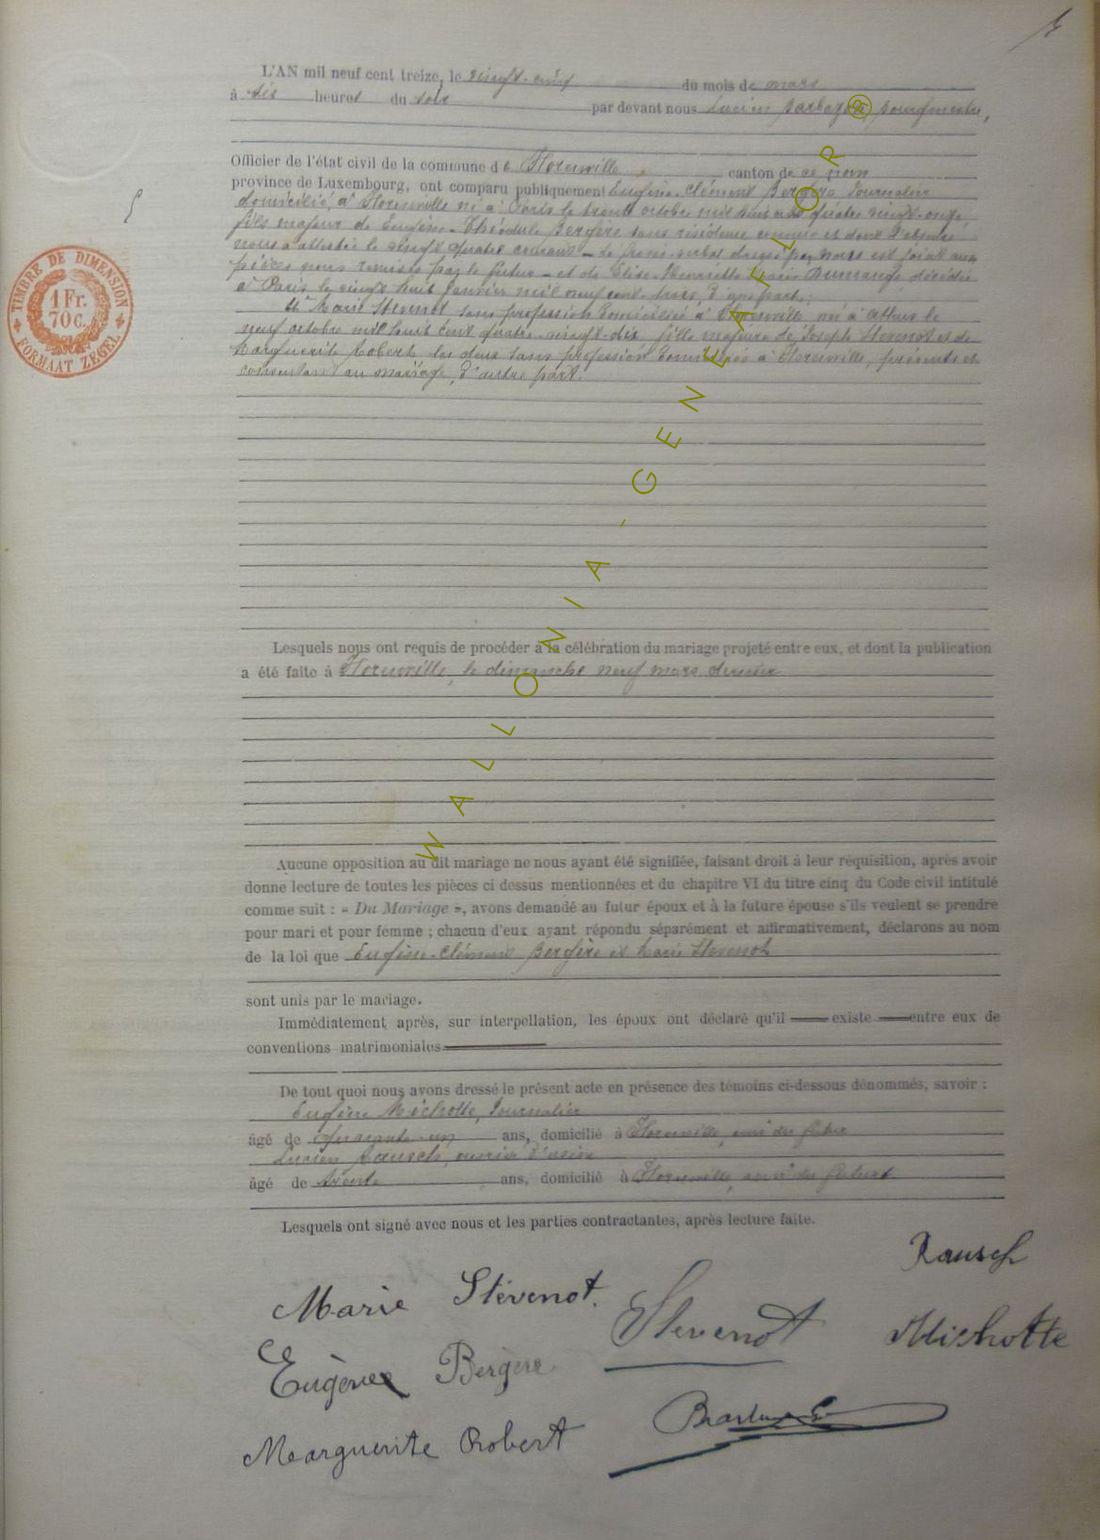 L'AN mil neuf cent treize, le vingt-neuf du mois de mars
à six heures du soir par devant nous Lucien bourgmestre,
Officier de l'état civil de la commune de Florenville canton de ce nom
province de Luxembourg, ont comparu publiquement Eugène-Clément Bergère Journalier
domicilié à Florenville né à Paris le trente octobre mil huit cent quatre vingt-onze
fils majeur de Eugène-Théodule Bergère sans résidence connue et dont l'absence
nous a attestée le vingt quatre courant – le procès-verbal dressé par nous est joint aux
pièces nous remises par le futur – et de Elise-Henriette décédée
à Paris le vingt huit Janvier mil neuf cent trois, d'une part;
Et Marie Stévenot sans profession domiciliée à Florenville née à Athus le
neuf octobre mil huit cent quatre-vingt-dix fille majeure de Joseph Stévenot et de
Marguerite Robert, les deux sans profession domiciliés à Florenville, présents et
consentant au mariage, d'autre part.
Lesquels nous ont requis de procéder à la célébration du mariage projeté entre eux, et dont la publication
a été faite à Florenville, le dimanche neuf mars dernier
Aucune opposition au dit mariage ne nous ayant été signifiée, faisant droit à leur réquisition, après avoir
donne lecture de toutes les pièces ci dessus mentionnées et du chapitre VI du titre cinq du Code civil intitulé
comme suit : « Du Mariage », avons demandé au futur époux et à la future épouse s'ils veulent se prendre
pour mari et pour femme ; chacun d'eux ayant répondu séparément et affirmativement, déclarons au nom
de la loi que Eugène-Clément Bergère et Marie Stévenot
sont unis par le mariage.
Immédiatement après, sur interpellation, les époux ont déclaré qu'il existe entre eux de
conventions matrimoniales
De tout quoi nous avons dressé le présent acte en présence des témoins ci-dessous dénommés, savoir :
Eugène Michotte, Journalier
âgé de quarante-un ans, domicilié à Florenville, ami du futur
Lucien Rausch, ouvrier d'usine
âgé de trente ans, domicilié à Florenville, ami du futur
Lesquels ont signé avec nous et les parties contractantes, après lecture faite.
Rausch
Marie Stévenot. Stevenot Michotte
Eugène Bergère
Marguerite Robert
TIMBRE DE DIMENSION
1 Fr.
70 C.
FORMAAT ZEGEL
WALLONIA-GENEAFLOR®